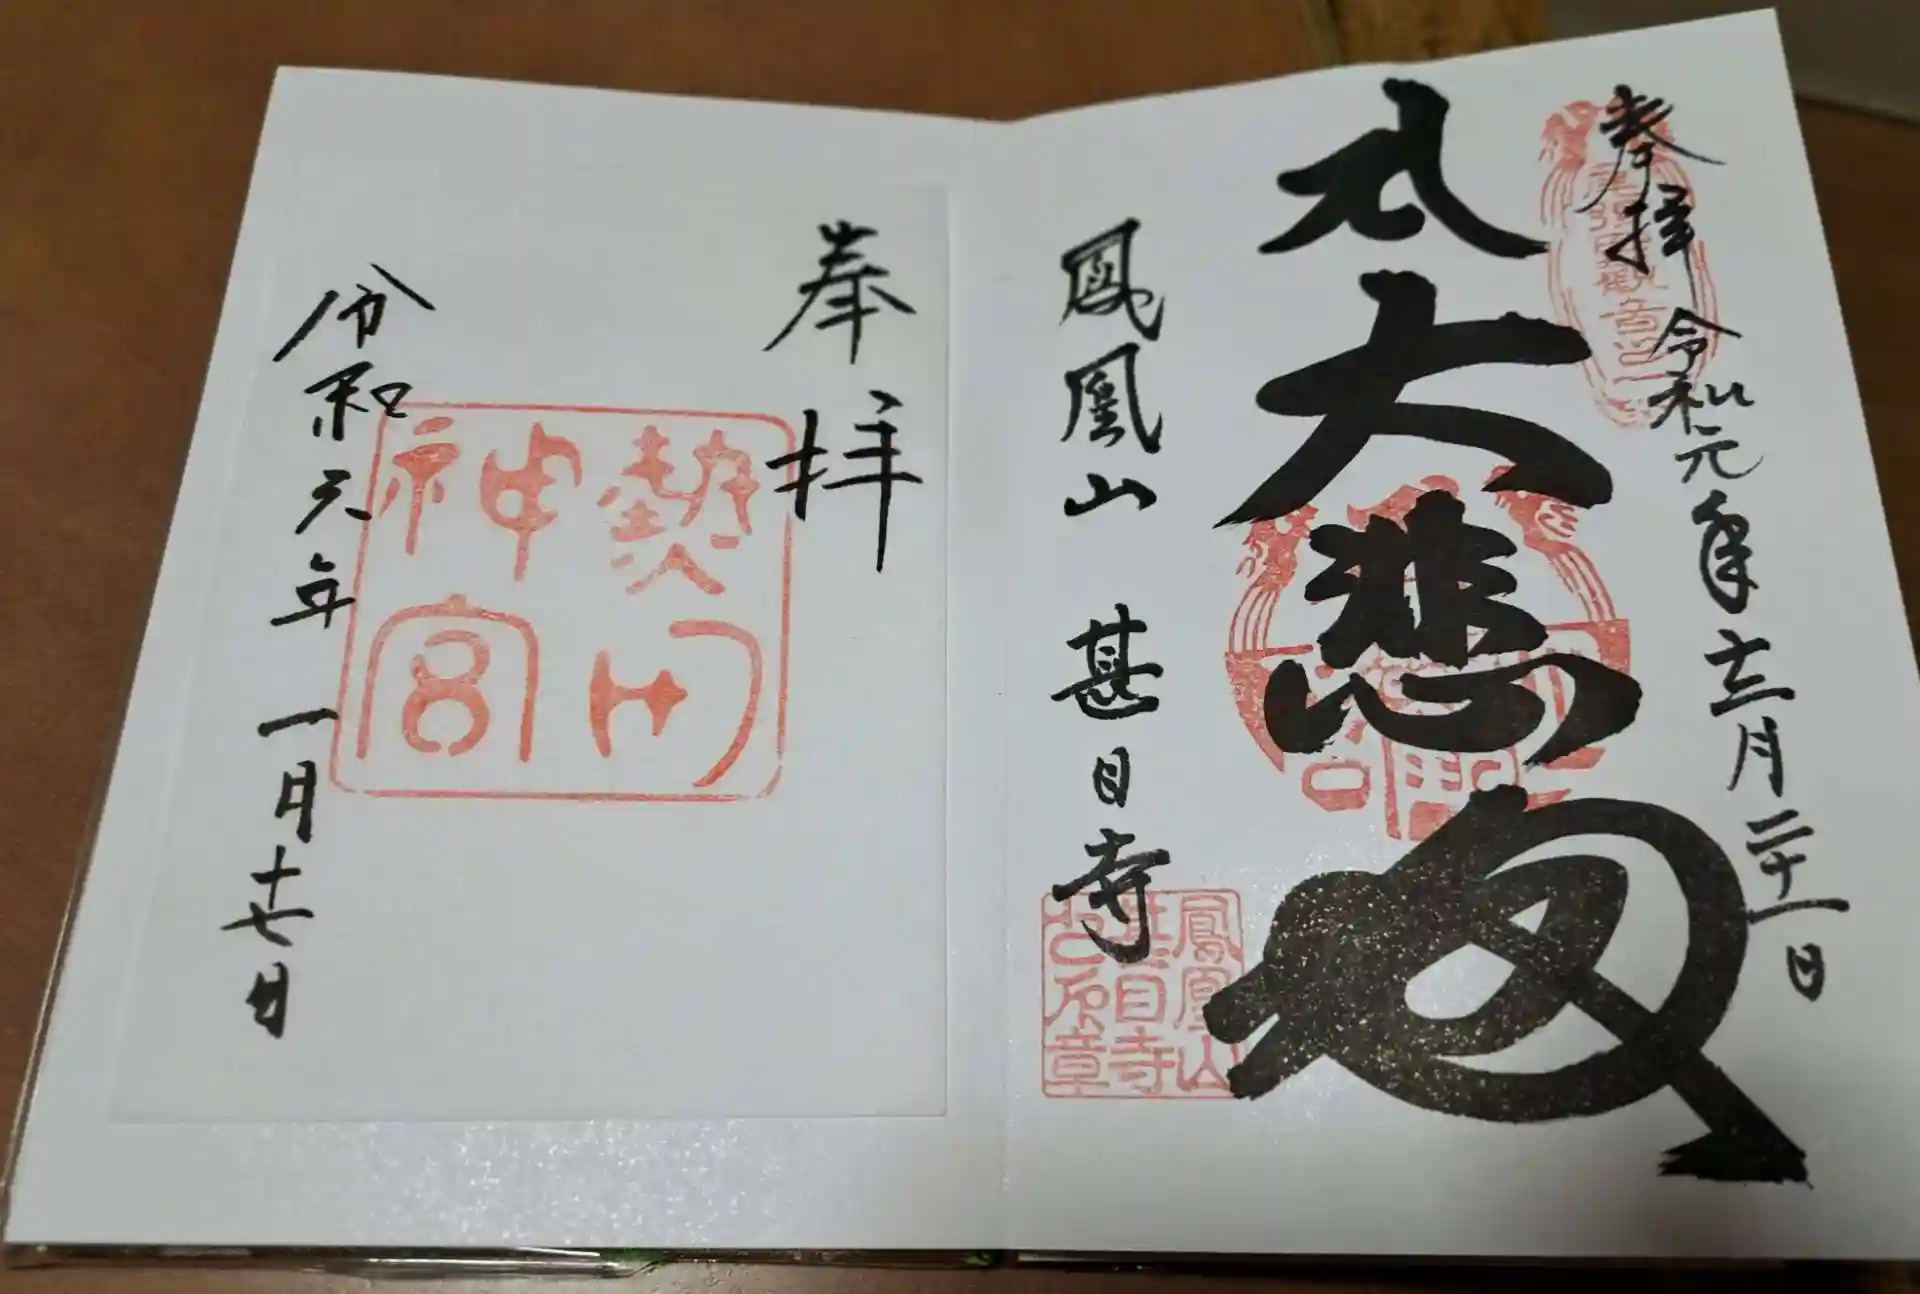 奉拝 令和元年十二月二十一日
大悲
鳳凰山 甚目寺
鳳凰山
甚目寺
奉拝
熱田
神宮
令和元年一月十七日